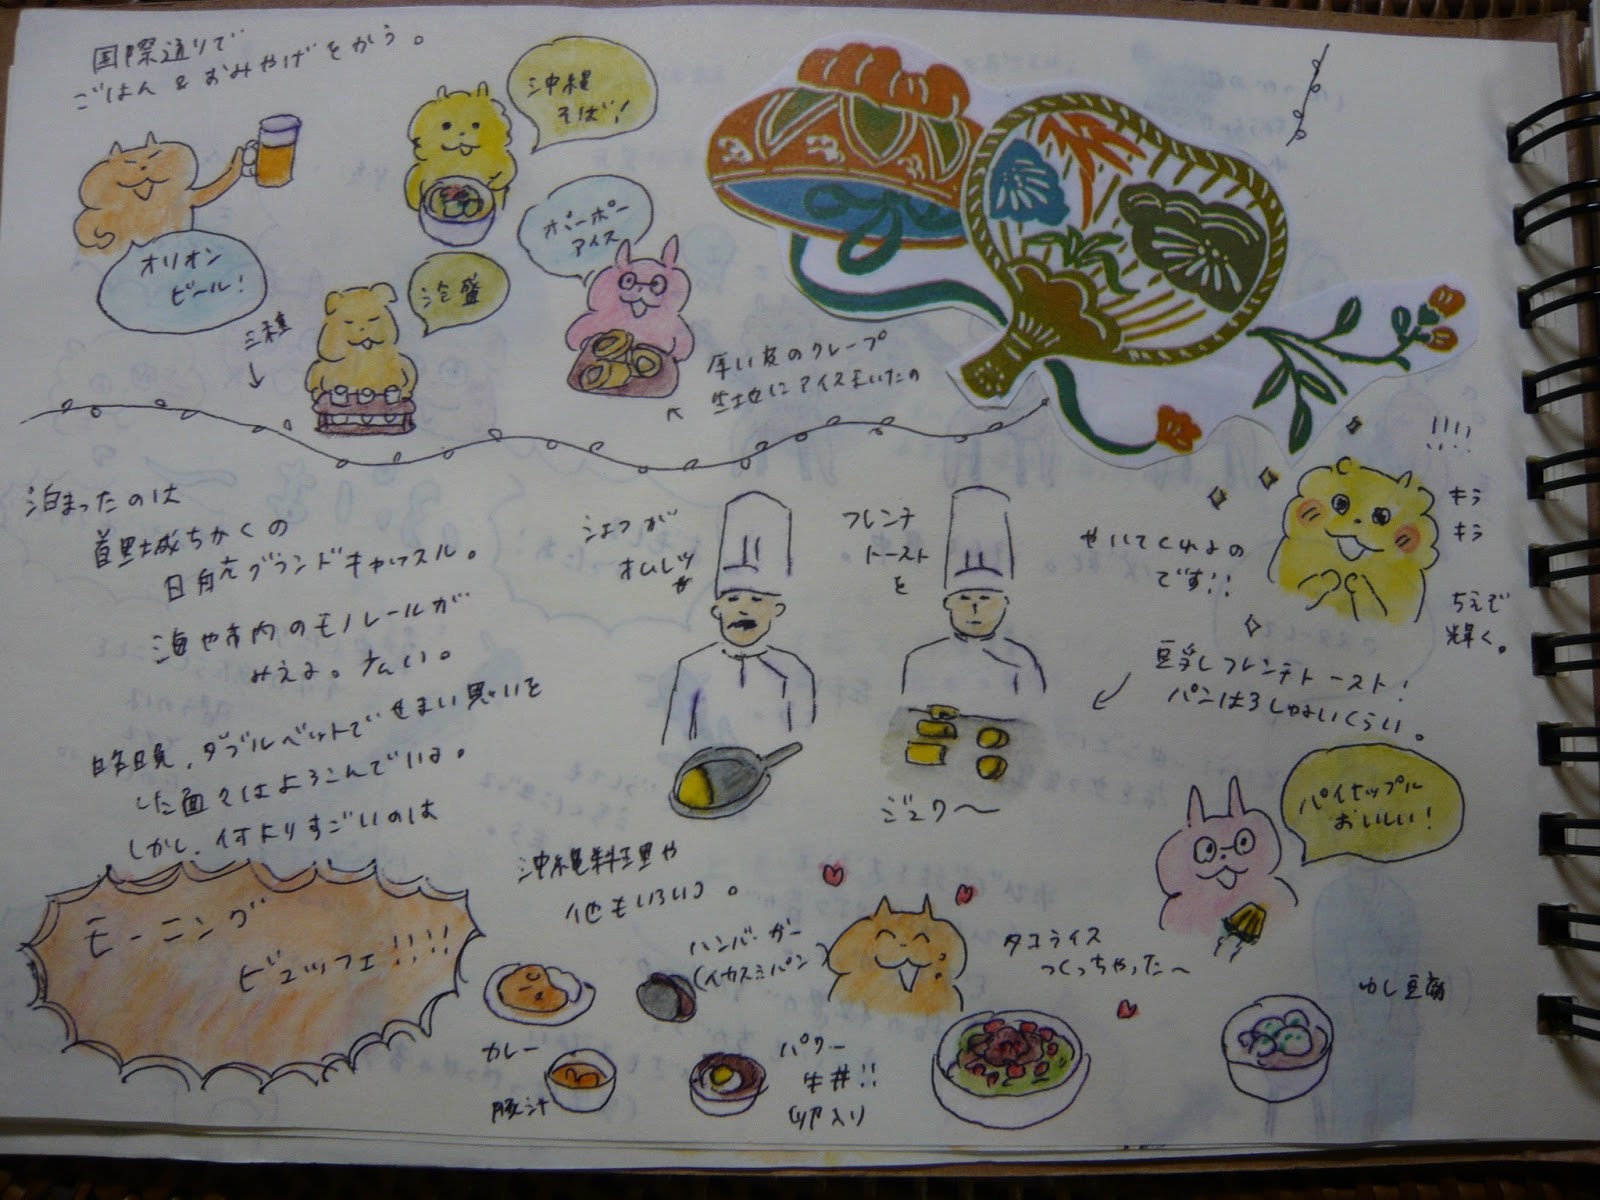 国際通りで
ごはん&おみやげをかう。
沖縄
そば!
オリオン
ビール!
ポーポー
アイス
泡盛
三種
厚い皮のクレープ
生地にアイスまいたの
泊まったのは
首里城ちかくの
日航グランドキャッスル。
海や市内のモノレールが
みえる。たかい。
昨晩、ダブルベットでせまい思いを
した面々はよろこんでいる。
しかし、何よりすごいのは
モーニング
ビュッフェ!!!!
シェフが
オムレツ
フレンチ
トースト
を
やいてくれるの
です!!
!!!!
キラ
キラ
ちえで
輝く。
豆乳フレンチトースト!
パンはろしゃないくらい。
ジュワ〜
パイナップル
おいしい!
沖縄料理や
他もいろいろ。
ハンバーガー
(イカスミパン)
タコライス
つくっちゃった〜
ゆし豆腐
カレー
豚汁
パワー
牛丼!!
卵入り